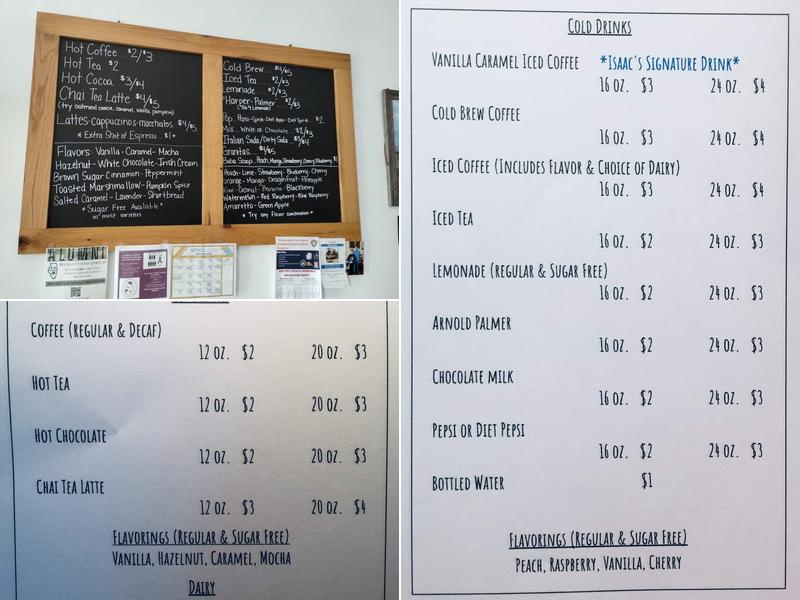 Hot Coffee $2/$3
Hot Tea $2
Hot Cocoa $3/$4
Chai Tea Latte $4/$5
(try oatmeal cookie, caramel, vanilla, pumpkin)
Lattes-cappuccinos-macchiatos $4/$5
*Extra Shot of Espresso $1*
Flavors: Vanilla-Caramel-Mocha
Hazelnut-White Chocolate-Irish Cream
Brown Sugar Cinnamon-Peppermint
Toasted Marshmallow-Pumpkin Spice
Salted Caramel-Lavender-Shortbread
*Sugar Free Available*
in most varieties
Cold Brew $4/$5
Iced Tea $2/$3
Lemonade $2/$3
"Harper-Palmer" $2/$3
(Tea & Lemonade)
Pop, Pepsi-Sprite-Diet Pepsi-Diet Sprite $2
Milk White or Chocolate $2/$3
Italian Soda/Dirty Soda $3/$4
Granitas $4/$5
Peach-Lime-Strawberry-Blueberry-Cherry
Orange-Mango-Dragonfruit-Pineapple
Kiwi-Coconut-Banana-Blackberry
Watermelon-Red Raspberry-Blue Raspberry
Amaretto-Green Apple
*Try any flavor combination*
ALUMNI
APRIL
Coffee (Regular & Decaf)
12 oz. $2 20 oz. $3
Hot Tea
12 oz. $2 20 oz. $3
Hot Chocolate
12 oz. $2 20 oz. $3
Chai Tea Latte
12 oz. $3 20 oz. $4
Flavorings (Regular & Sugar Free)
Vanilla, Hazelnut, Caramel, Mocha
Dairy
Cold Drinks
Vanilla Caramel Iced Coffee *Isaac's Signature Drink*
16 oz. $3 24 oz. $4
Cold Brew Coffee
16 oz. $3 24 oz. $4
Iced Coffee (Includes Flavor & Choice of Dairy)
16 oz. $3 24 oz. $4
Iced Tea
16 oz. $2 24 oz. $3
Lemonade (regular & Sugar Free)
16 oz. $2 24 oz. $3
Arnold Palmer
16 oz. $2 24 oz. $3
Chocolate milk
16 oz. $2 24 oz. $3
Pepsi or Diet Pepsi
16 oz. $2 24 oz. $3
Bottled Water $1
Flavorings (Regular & Sugar Free)
Peach, Raspberry, Vanilla, Cherry